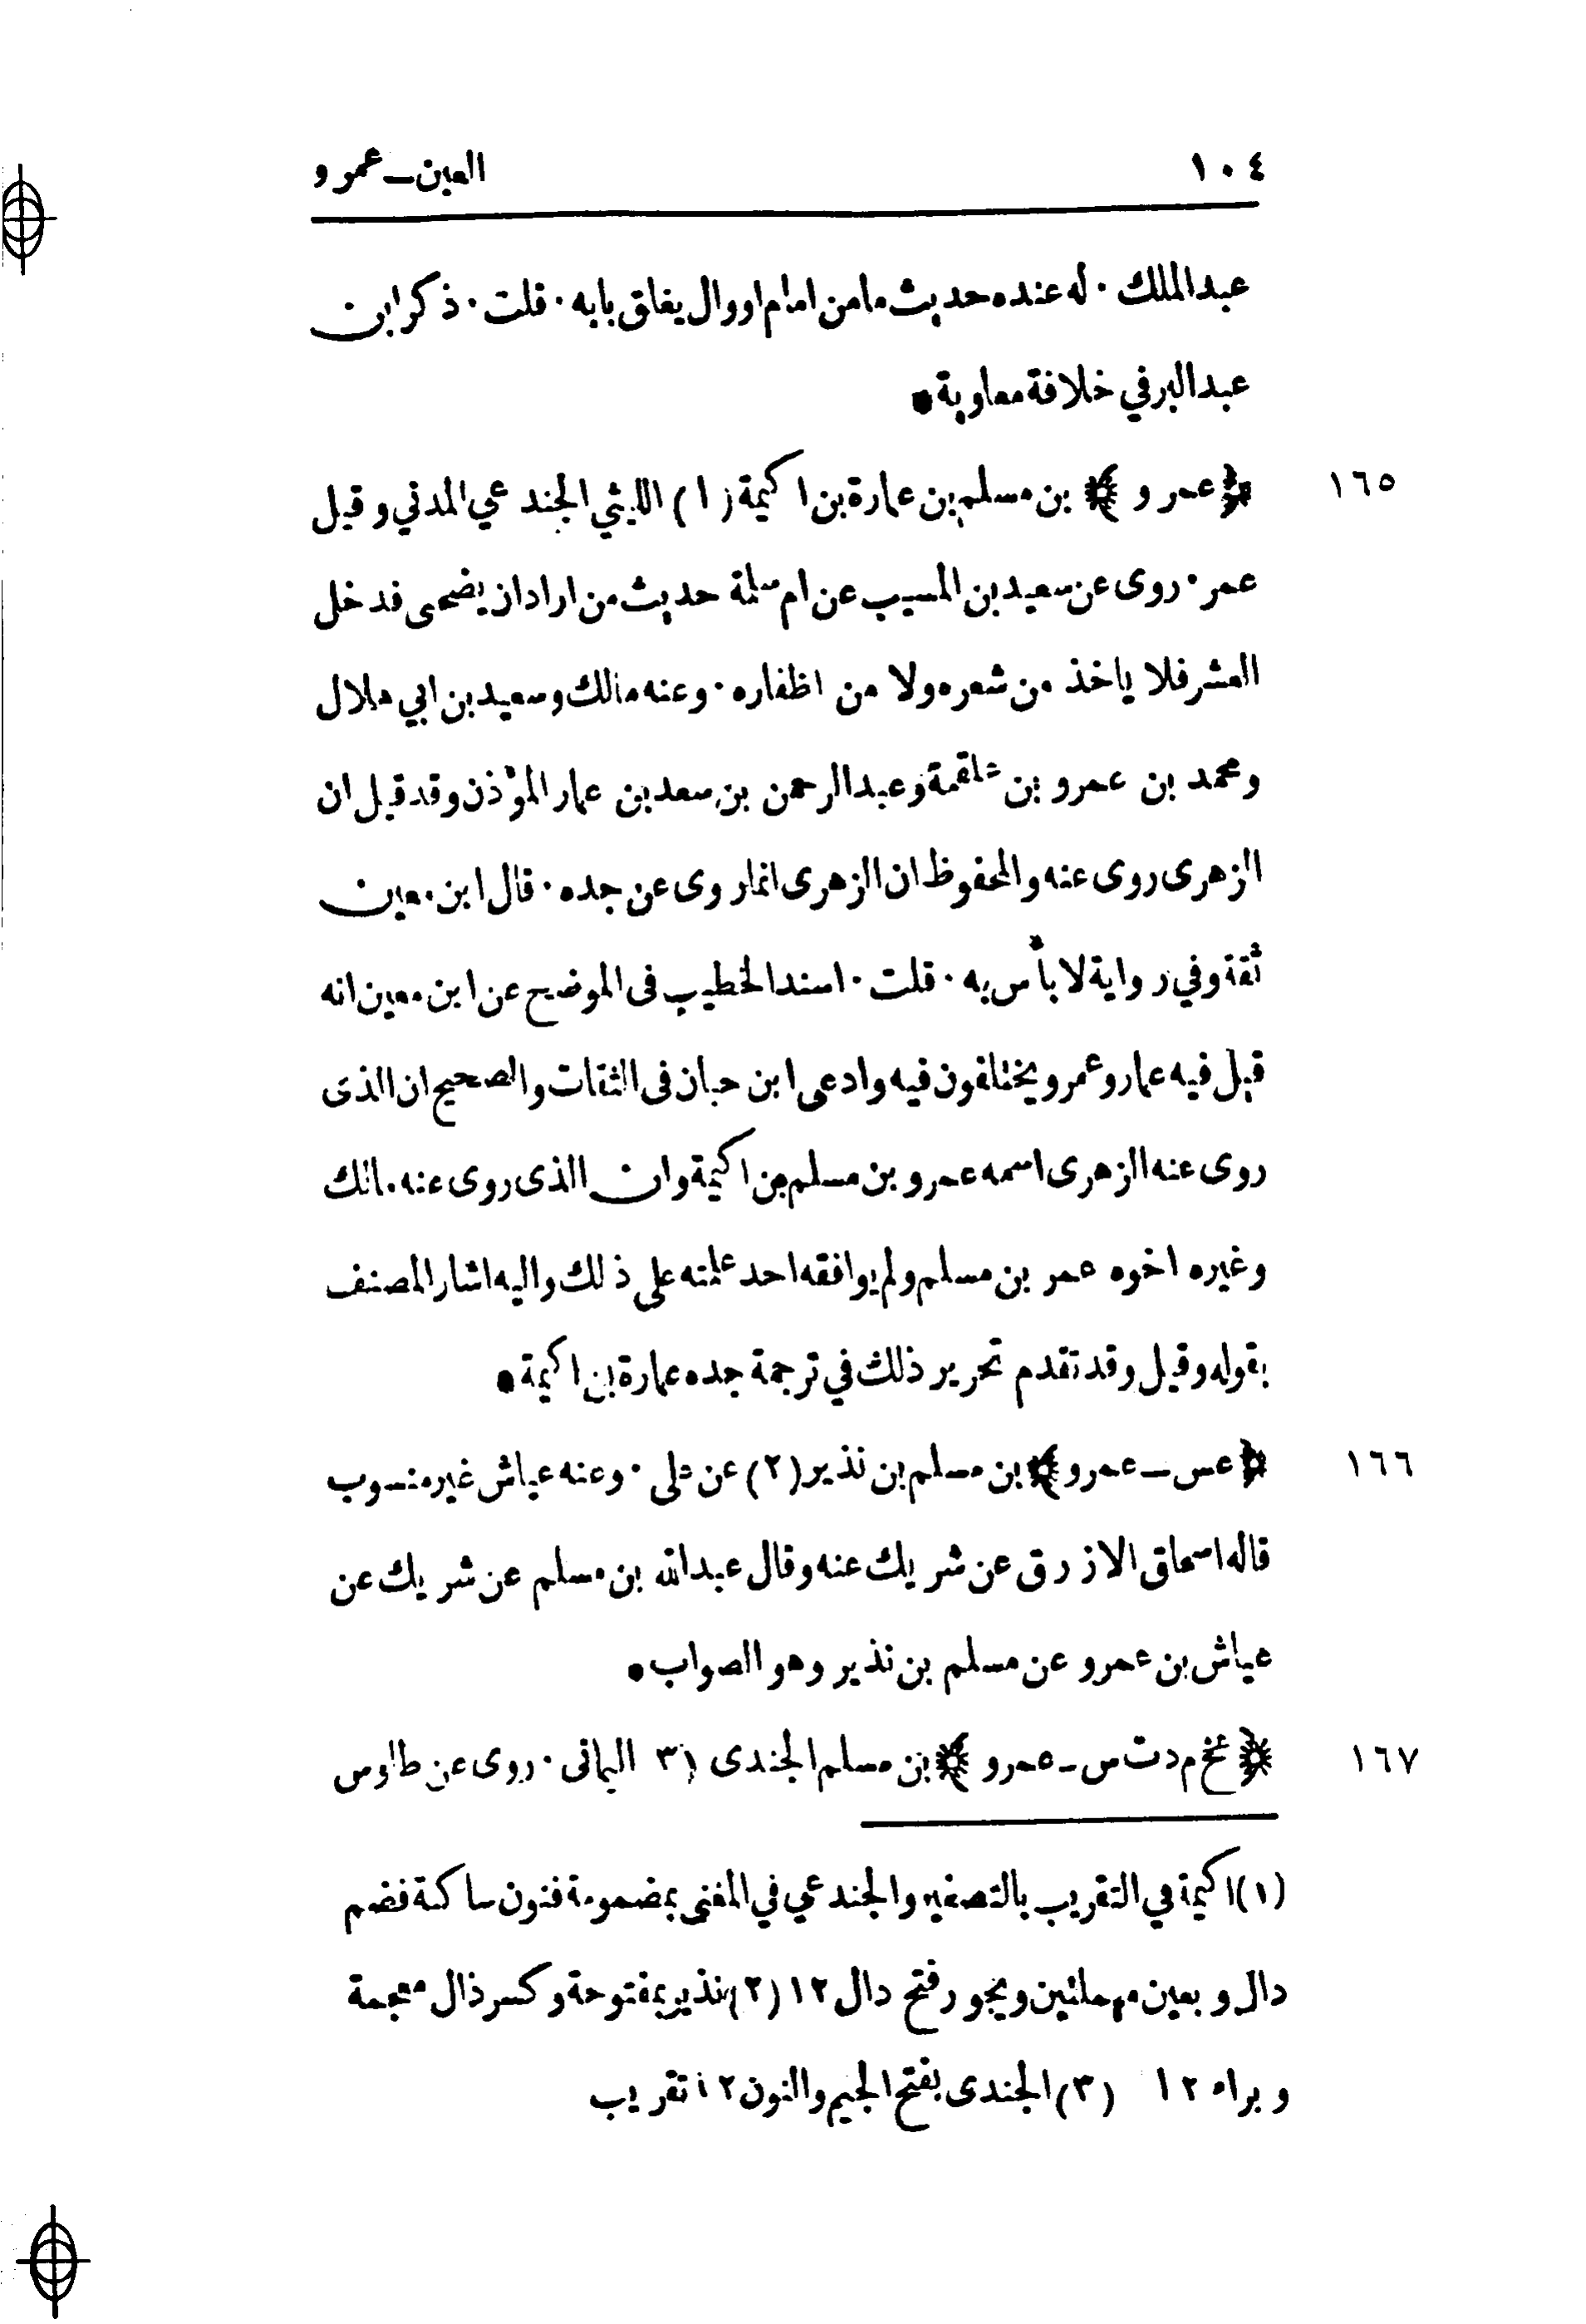 ١٠٤ العين ـ عمرو
عبدالملك · له عنده حديث مامن امام او وال يغلق بابه · قلت · ذكر ابن
عبدالبر في خلافة معاوية ●
١٦٥ ﴿ عمرو ﴾ بن مسلم بن عمارة بن اكيمة (١) الليثي الجندعي المدني وقيل
عمر · روى عن سعيد بن المسيب عن ام سلمة حديث من اراد ان يضحى فدخل
العشر فلا ياخذ من شعره ولا من اظفاره · وعنه مالك وسعيد بن ابي هلال
ومحمد بن عمرو بن علقمة وعبدالرحمن بن سعد بن عمار المؤذن وقد قيل ان
الزهرى روى عنه والمحفوظ ان الزهرى انما روى عن جده · قال ابن معين
ثقة وفي رواية لا بأس به · قلت · اسند الخطيب فى الموضح عن ابن معين انه
قيل فيه عمار وعمرو يختلفون فيه وادعى ابن حبان فى الثقات والصحيح ان الذى
روى عنه الزهرى اسمه عمرو بن مسلم بن اكيمة وان الذى روى عنه مالك
وغيره اخوه عمر بن مسلم ولم يوافقه احد علمته على ذلك واليه اشار المصنف
بقوله وقيل وقد تقدم تحرير ذلك في ترجمة جده عمارة بن اكيمة ●
١٦٦ ﴿ عس ـ عمرو ﴾ بن مسلم بن نذير (٢) عن على · وعنه عياش غير منسوب
قاله اسحاق الازرق عن شريك عنه وقال عبدالله بن مسلم عن شريك عن
عياش بن عمرو عن مسلم بن نذير وهو الصواب ●
١٦٧ ﴿ عخ م د ت س ـ عمرو ﴾ بن مسلم الجندى (٣ اليمانى · روى عن طاوس
(١) اكيمة في التقريب بالتصغير والجندعي في المغنى بمضمومة فنون ساكنة فضم
دال وبعين مهملتين ويجوز فتح دال ١٢ (٢) نذير بمفتوحة وكسر ذال معجمة
وبراء ١٢ (٣) الجندى بفتح الجيم والنون ١٢ تقريب